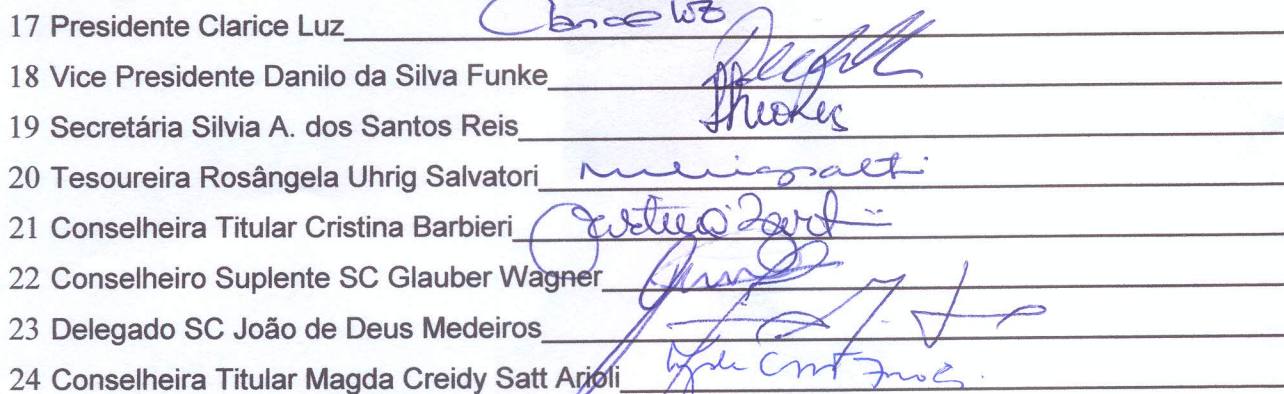 17 Presidente Clarice Luz Clarice Luz
18 Vice Presidente Danilo da Silva Funke
19 Secretária Silvia A. dos Santos Reis
20 Tesoureira Rosângela Uhrig Salvatori
21 Conselheira Titular Cristina Barbieri
22 Conselheiro Suplente SC Glauber Wagner
23 Delegado SC João de Deus Medeiros
24 Conselheira Titular Magda Creidy Satt Arioli